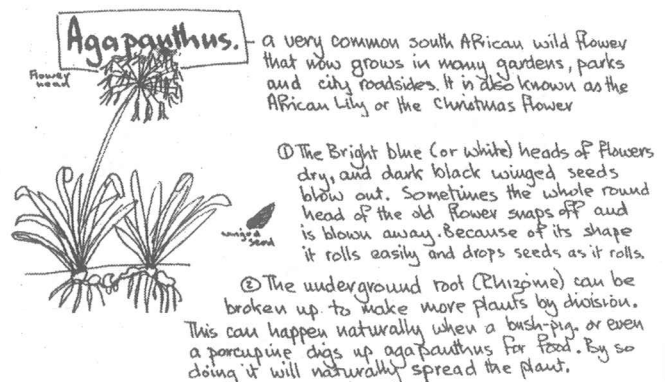 Agapanthus.
Flower
head
a very common south African wild flower
that now grows in many gardens, parks
and city roadsides. It is also known as the
African Lily or the Christmas Flower
① The Bright blue (or white) heads of flowers
dry, and dark black winged seeds
blow out. Sometimes the whole round
head of the old flower snaps off and
is blown away. Because of its shape
it rolls easily and drops seeds as it rolls.
winged
seed
② The underground root (Rhizome) can be
broken up to make more plants by division.
This can happen naturally when a bush-pig. or even
a porcupine digs up agapanthus for food. By so
doing it will naturally spread the plant.